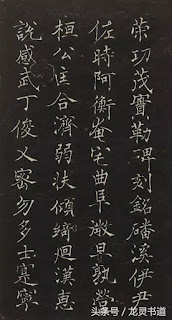 策功茂實勒碑刻銘磻溪伊尹
佐時阿衡奄宅曲阜微旦孰營
桓公匡合濟弱扶傾綺迴漢惠
說感武丁俊乂密勿多士寔寧
头条号 / 龙灵书道